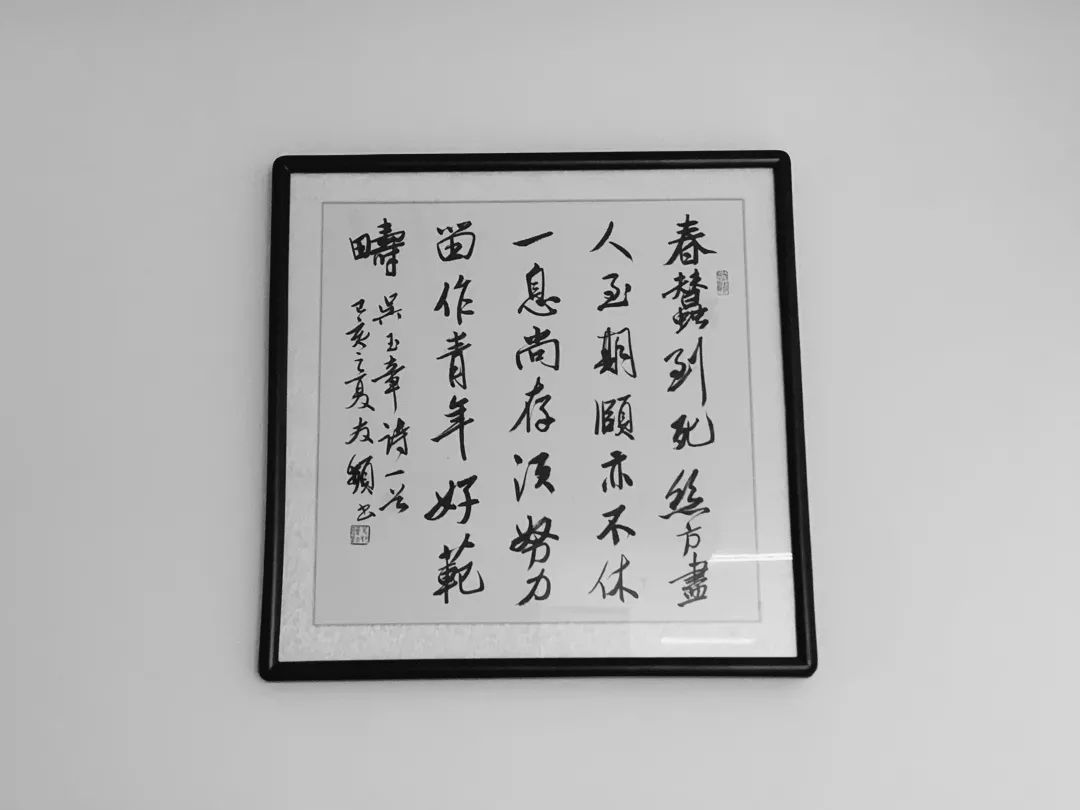 春蠶到死絲方盡
人至期頤亦不休
一息尚存須努力
留作青年好範
疇 吳玉章詩一首
己亥之夏友
書